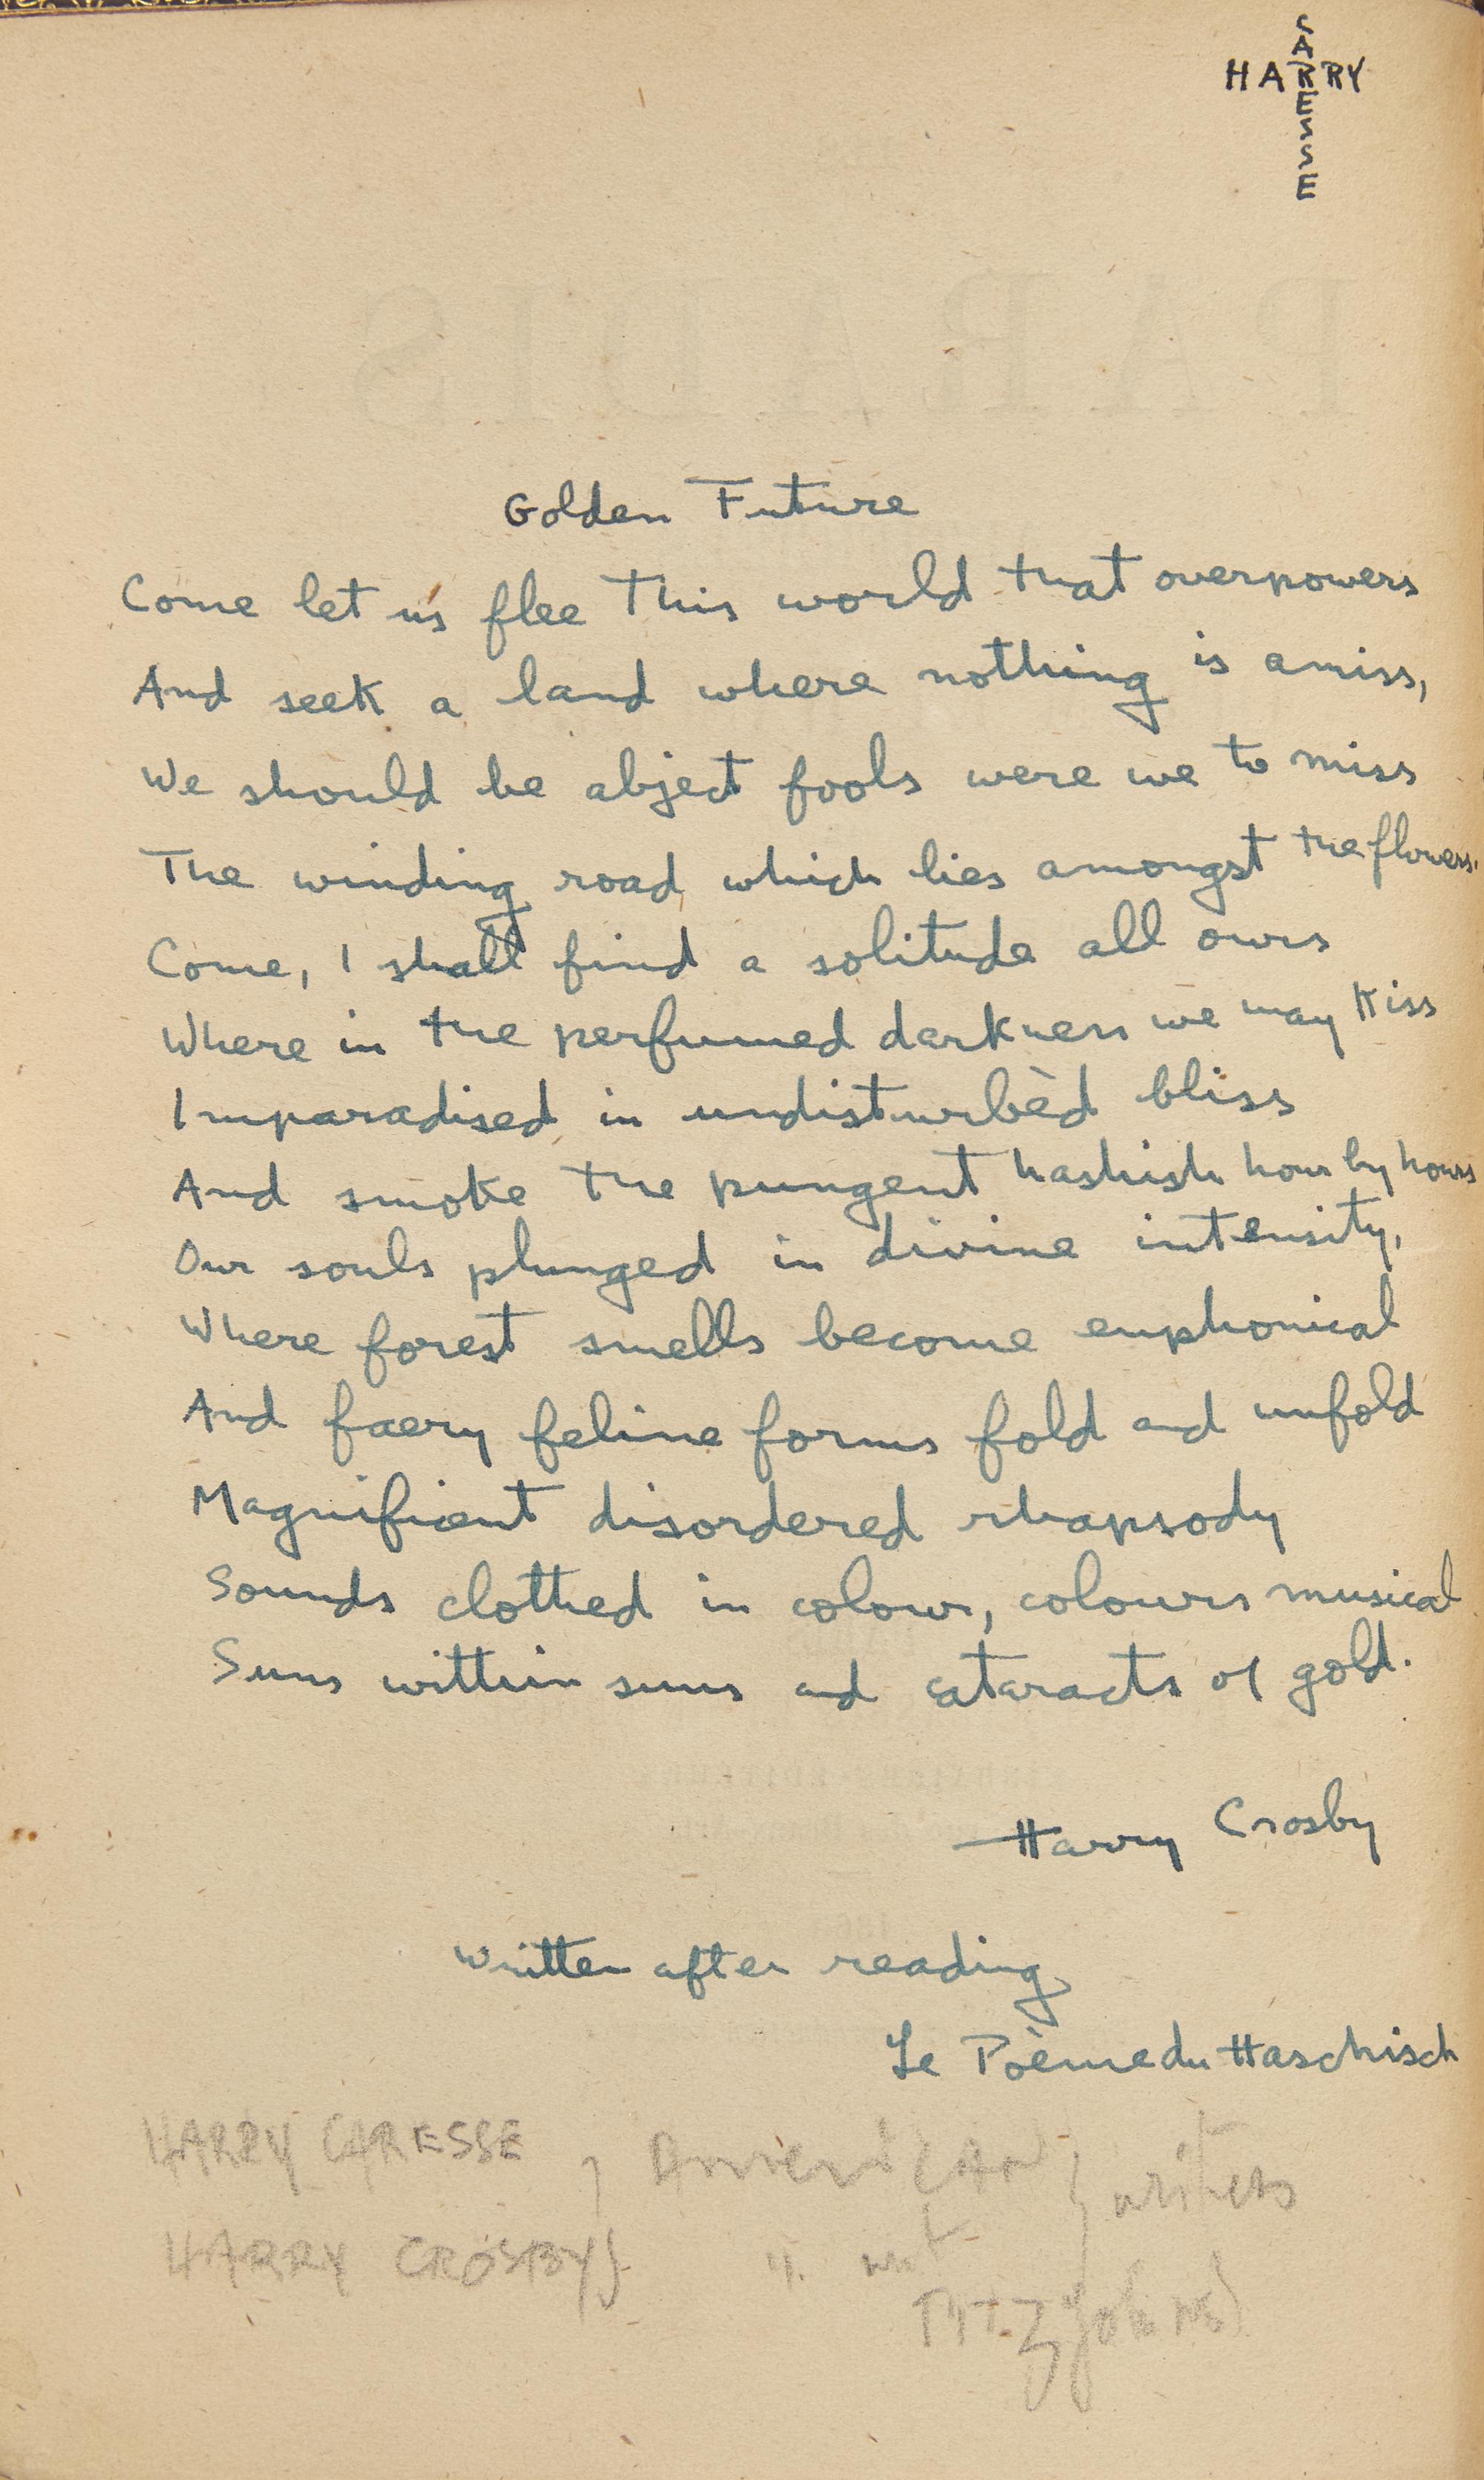 CARESSE
HARRY
Golden Future
Come let us flee this world that overpowers
And seek a land where nothing is amiss,
We should be abject fools were we to miss
The winding road which lies amongst the flowers.
Come, I shall find a solitude all ours
Where in the perfumed darkness we may kiss
Imparadised in undisturbèd bliss
And smoke the pungent hashish hour by hours
Our souls plunged in divine intensity,
Where forest smells become euphonical
And faery feline forms fold and unfold
Magnificent disordered rhapsody
Sounds clothed in colour, colours musical
Suns within suns and cataracts of gold.
Harry Crosby
Written after reading
Le Poème du Haschisch
HARRY CARESSE, AmeriCAN writers
HARRY CROSBY